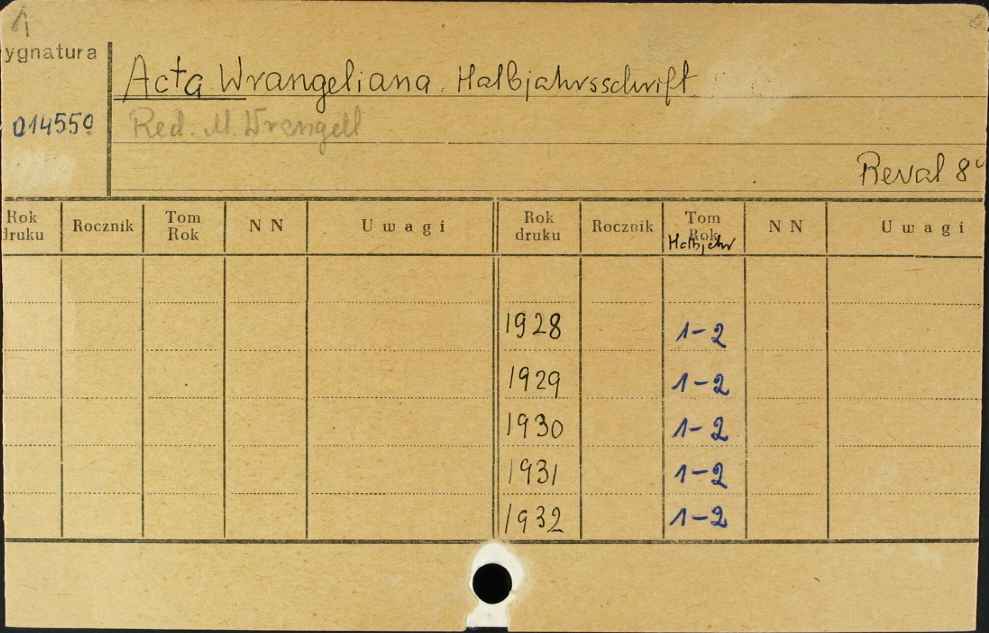 1
ygnatura
Acta Wrangeliana. Halbjahrsschrift
014550
Red. M. Wrangell
Reval 8°
Rok druku Rocznik Tom Rok N N Uwagi Rok druku Rocznik Tom Rok Halbjahr N N Uwagi
1928 1-2
1929 1-2
1930 1-2
1931 1-2
1932 1-2